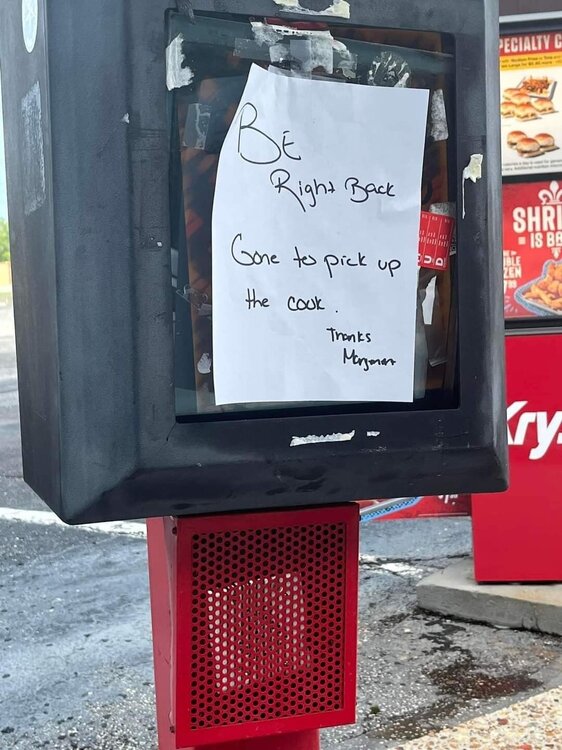 BE
Right Back
Gone to pick up
the cook.
Thanks
PECIALTY C
SHRI
IS BB
Kry